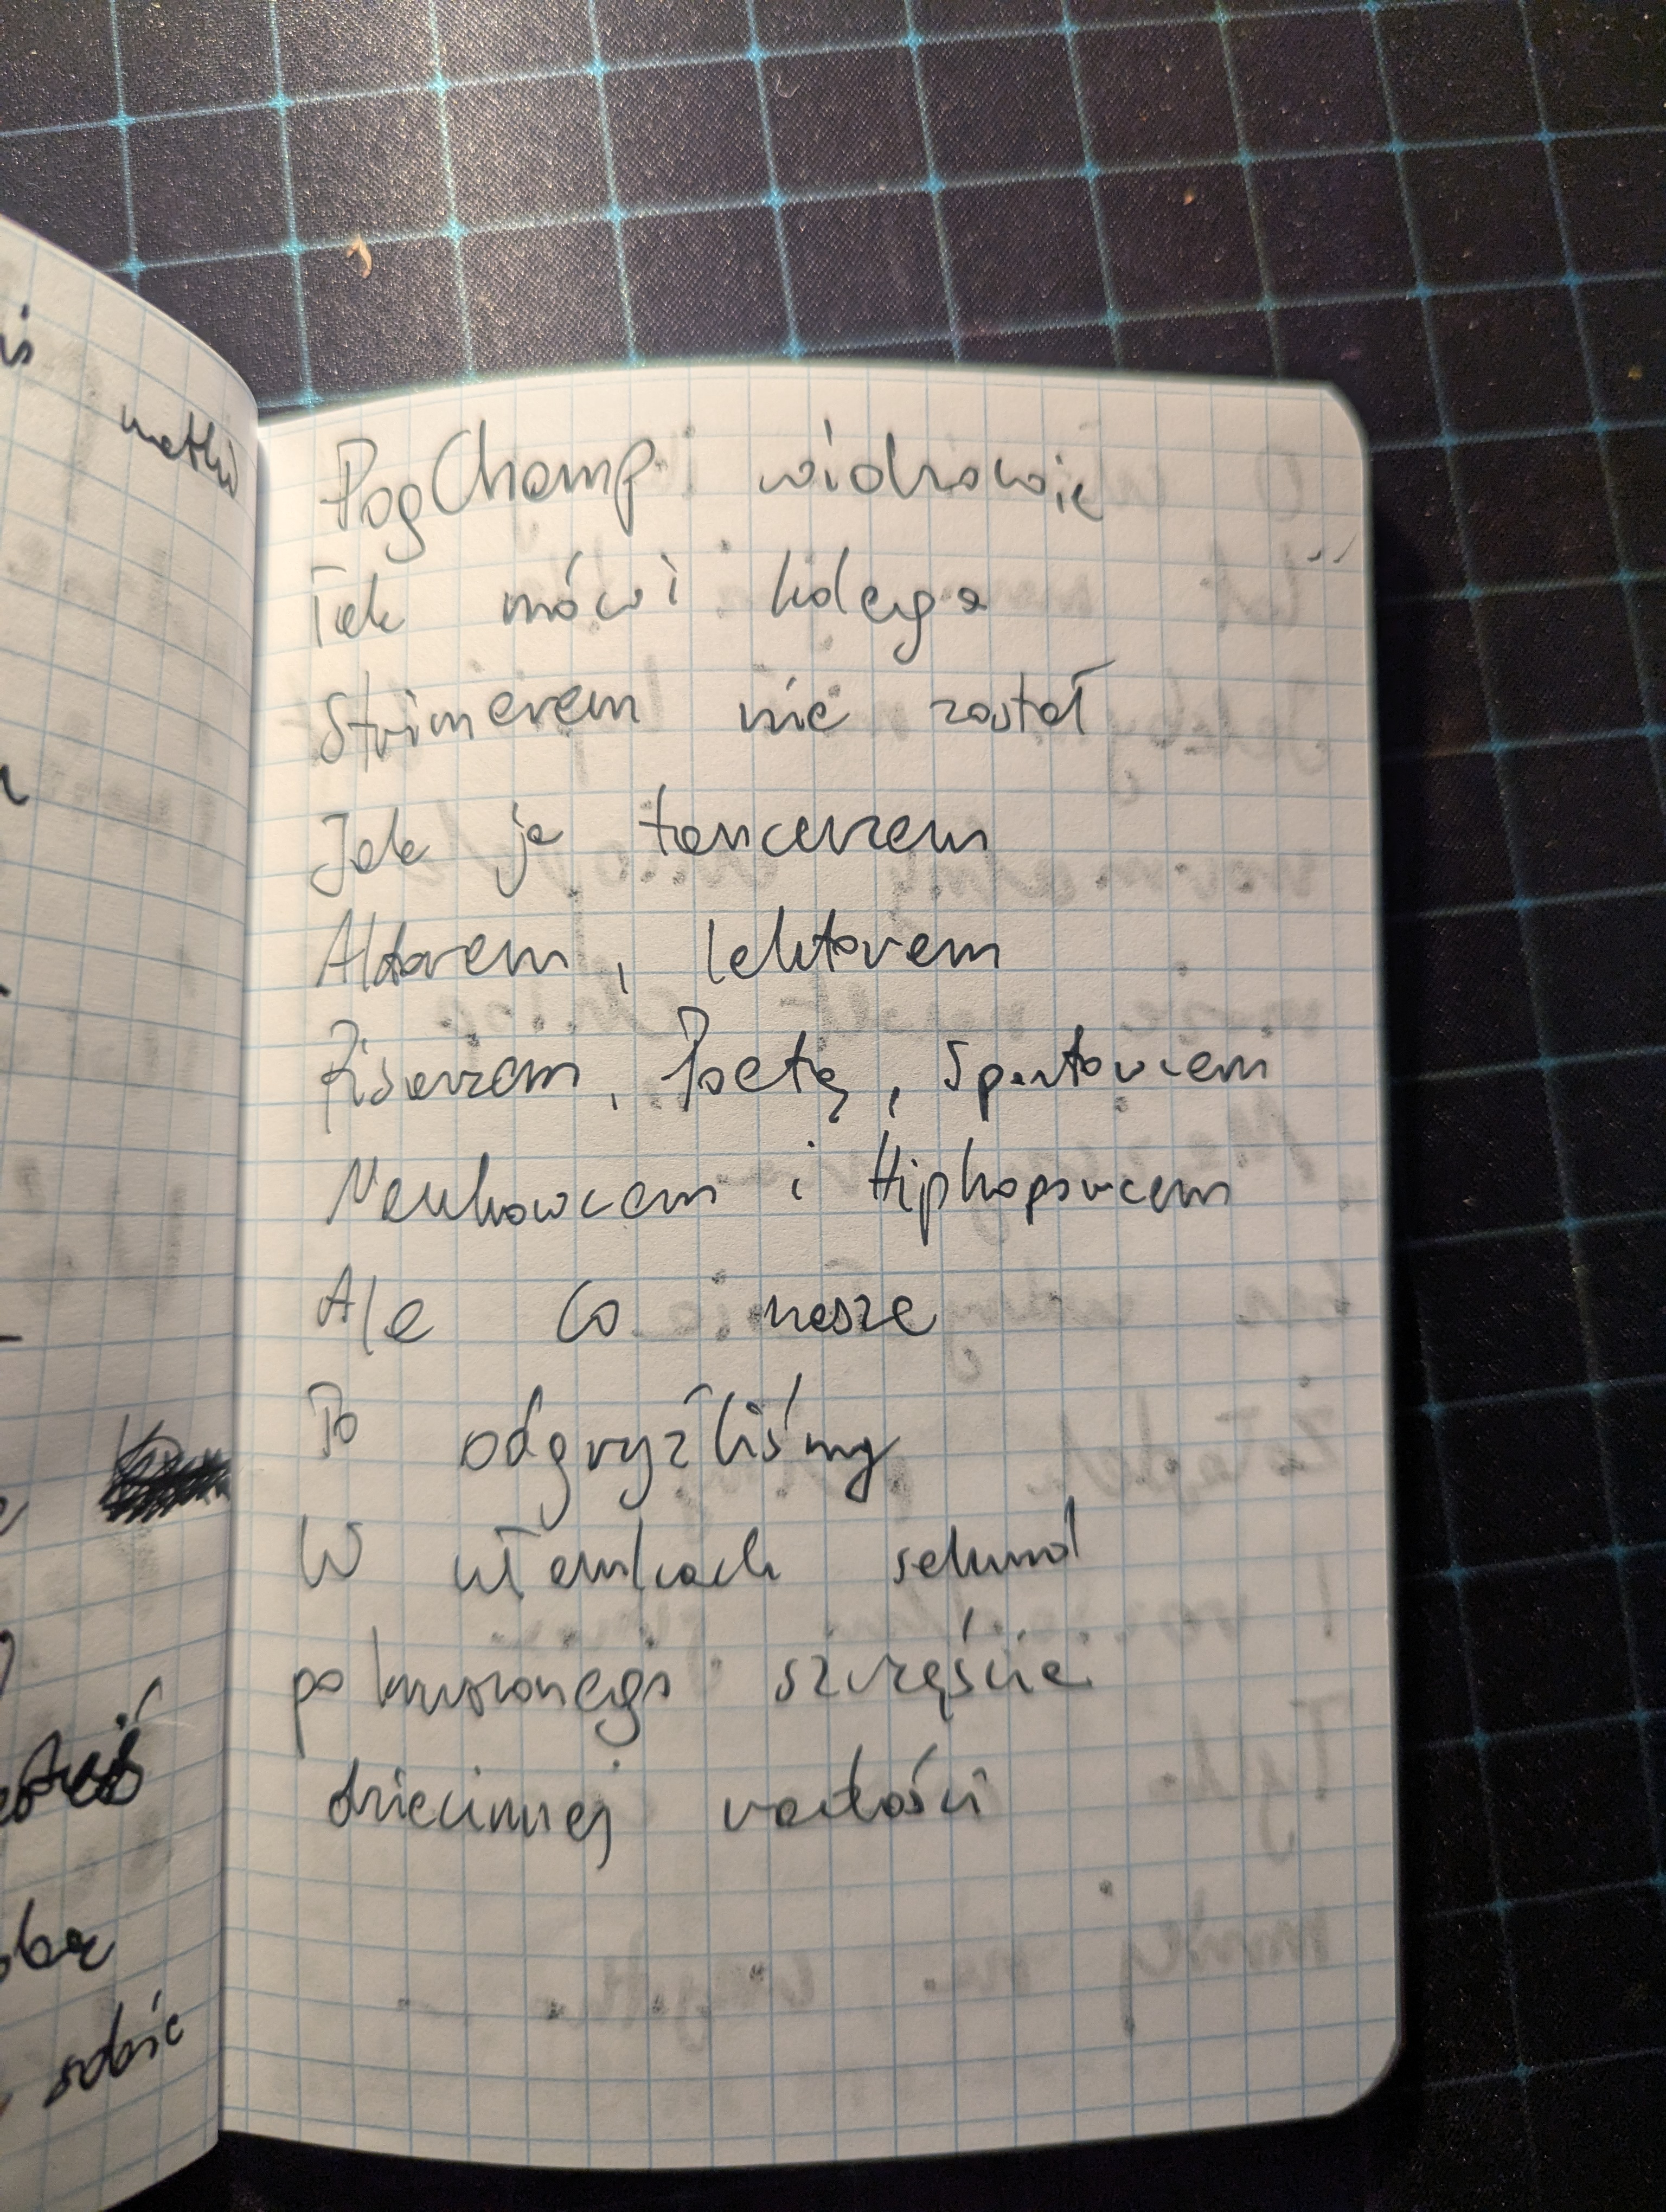 matki
PogChamp widzowie
Tak mówi kolega
Strimerem nie został
Jak ja tancerzem
Aktorem, lektorem
Pisarzem, Poetą, Sportowcem
Naukowcem i Hiphopowcem
Ale co nasze
To odgryźliśmy
W ułamkach sekund
pokruszonego szczęścia
dziecinnej radości
sobie